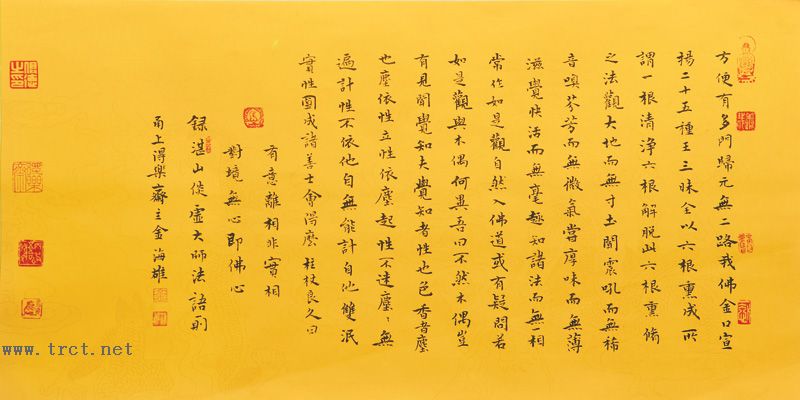 方便有多門歸元無二路我佛金口宣
揚二十五種王三昧全以六根熏成所
謂一根清淨六根解脫此六根熏脩
之法觀大地而無寸土聞震吼而無稀
音嗅芬芳而無微氣嘗厚味而無薄
滋覺快活而無毫趣知諸法而無一相
常作如是觀自然入佛道或有疑問若
如是觀與木偶何異吾曰不然木偶豈
有見聞覺知夫覺知者性也色香者塵
也塵依性立性依塵起性不迷塵塵無
遍計性不依他自無能計自他雙泯
實性圓成諸善士會得麼拄杖良久曰
有意離相非實相
對境無心即佛心
錄湛山倓虛大師法語一則
甬上得樂齋主金海雄
www.trct.net